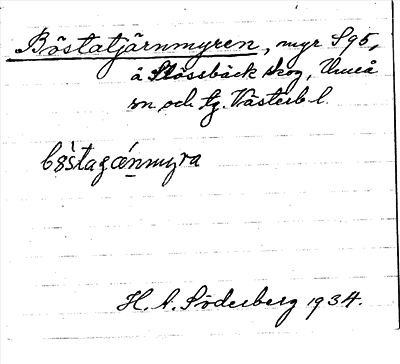 Böstatjärnmyren, myr S 95,
å Stössbäck skog, Umeå
sn och tg. Västerb l.
bös̀tagœ́nmyra
H. A. Söderberg 1934.